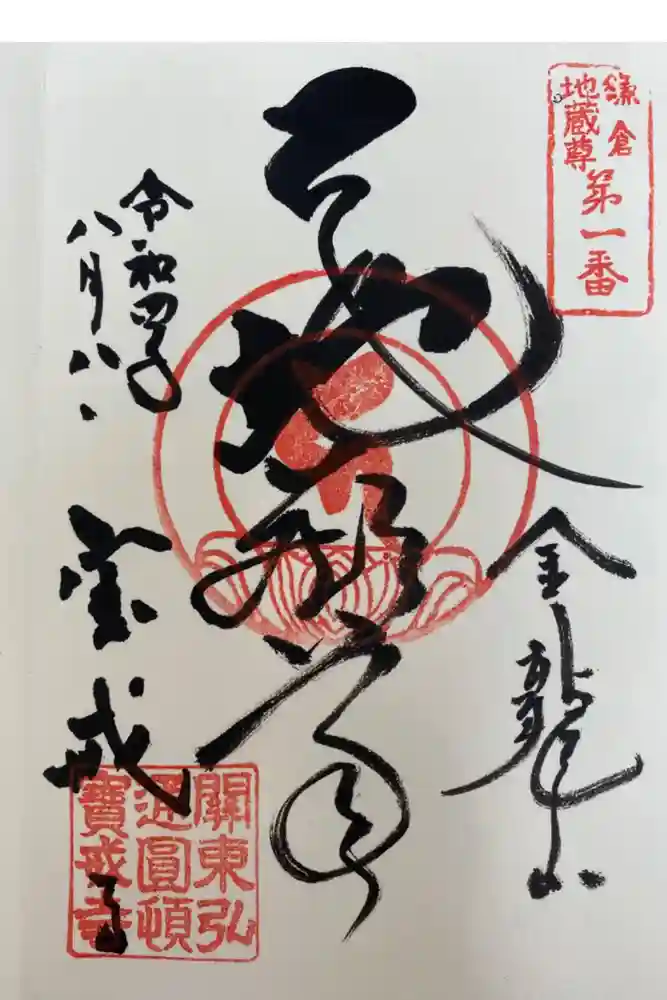 鎌倉
地蔵尊
第一番
金龍山
子安地蔵尊
令和四年
八月八日
宝戒寺
關東弘
通圓頓
寶戒寺